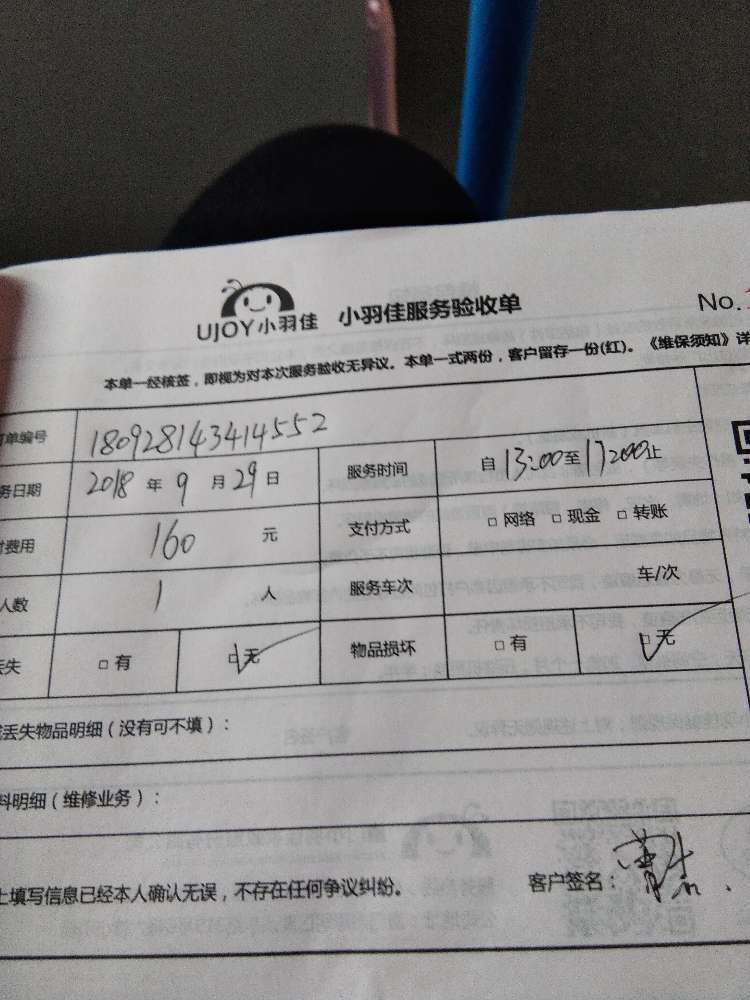 UJOY小羽佳 小羽佳服务验收单 No.
本单一经核签，即视为对本次服务验收无异议。本单一式两份，客户留存一份(红)。《维保须知》详
单编号 180928143414552
务日期 2018 年 9 月 29 日 服务时间 自 13:00 至 17:00 止
费用 160 元 支付方式 □ 网络 □ 现金 □ 转账
人数 1 人 服务车次 车/次
丢失 □ 有 □ 无 物品损坏 □ 有 □ 无
丢失物品明细（没有可不填）：
料明细（维修业务）：
上填写信息已经本人确认无误，不存在任何争议纠纷。 客户签名：